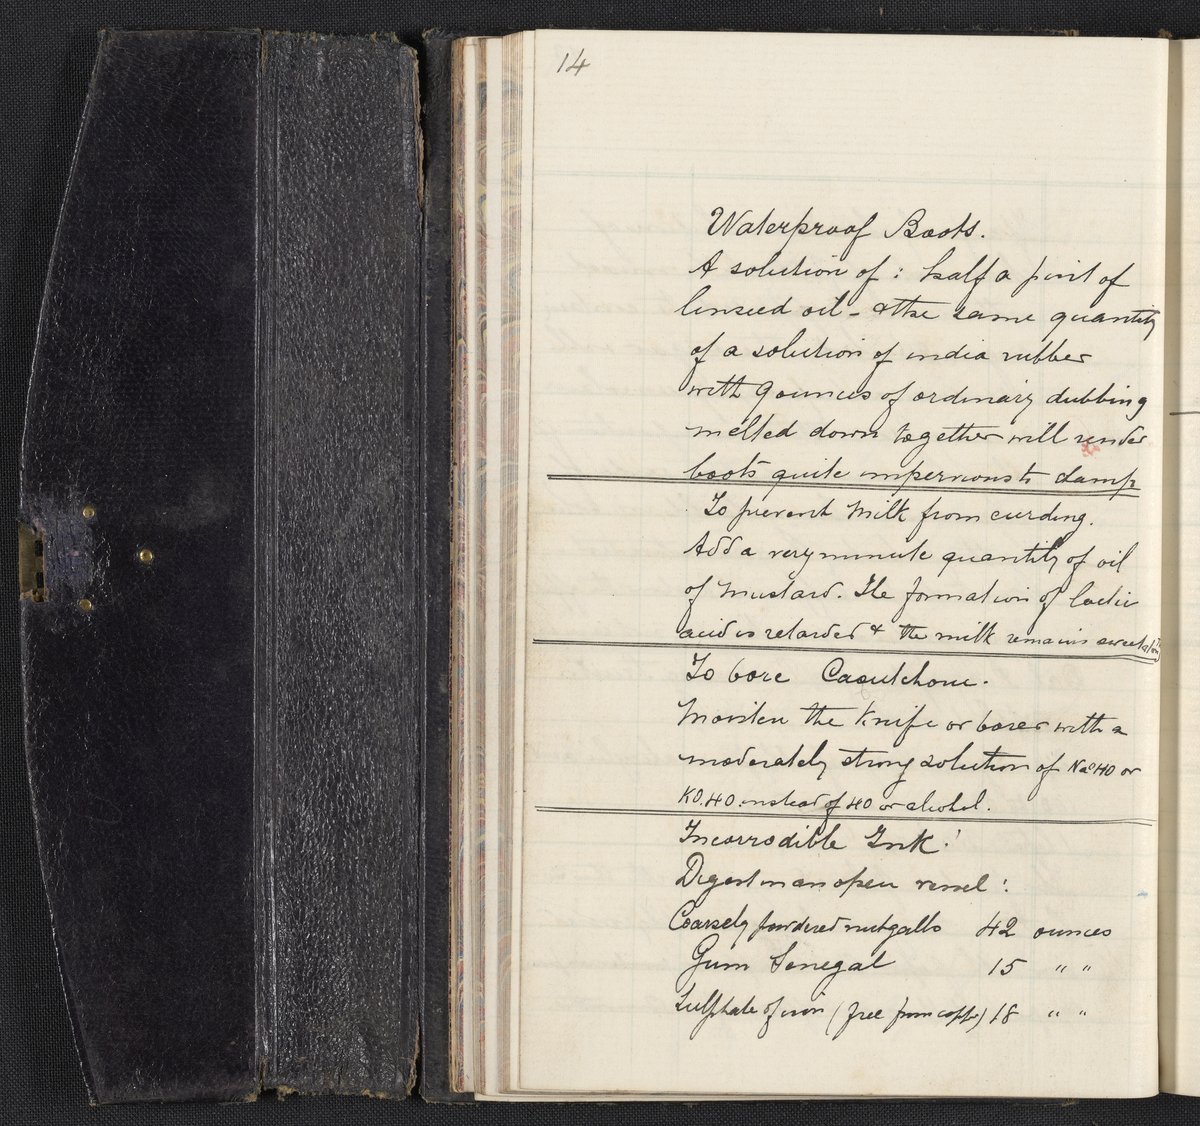 14
Waterproof Boots.
A solution of : half a pint of
linseed oil - & the same quantity
of a solution of india rubber
with 9 ounces of ordinary dubbing
melted down together will render
boots quite impervious to damp
To prevent Milk from curding.
Add a very minute quantity of oil
of Mustard. The formation of lactic
acid is retarded & the milk remains sweet
To bore Caoutchouc.
Moisten the Knife or borer with a
moderately strong solution of NaO HO or
KO.HO instead of HO or alcohol.
Incorrodible Ink!
Digest in an open vessel :
Coarsely powdered nutgalls 42 ounces
Gum Senegal 15 " "
Sulphate of iron (free from copper) 18 " "